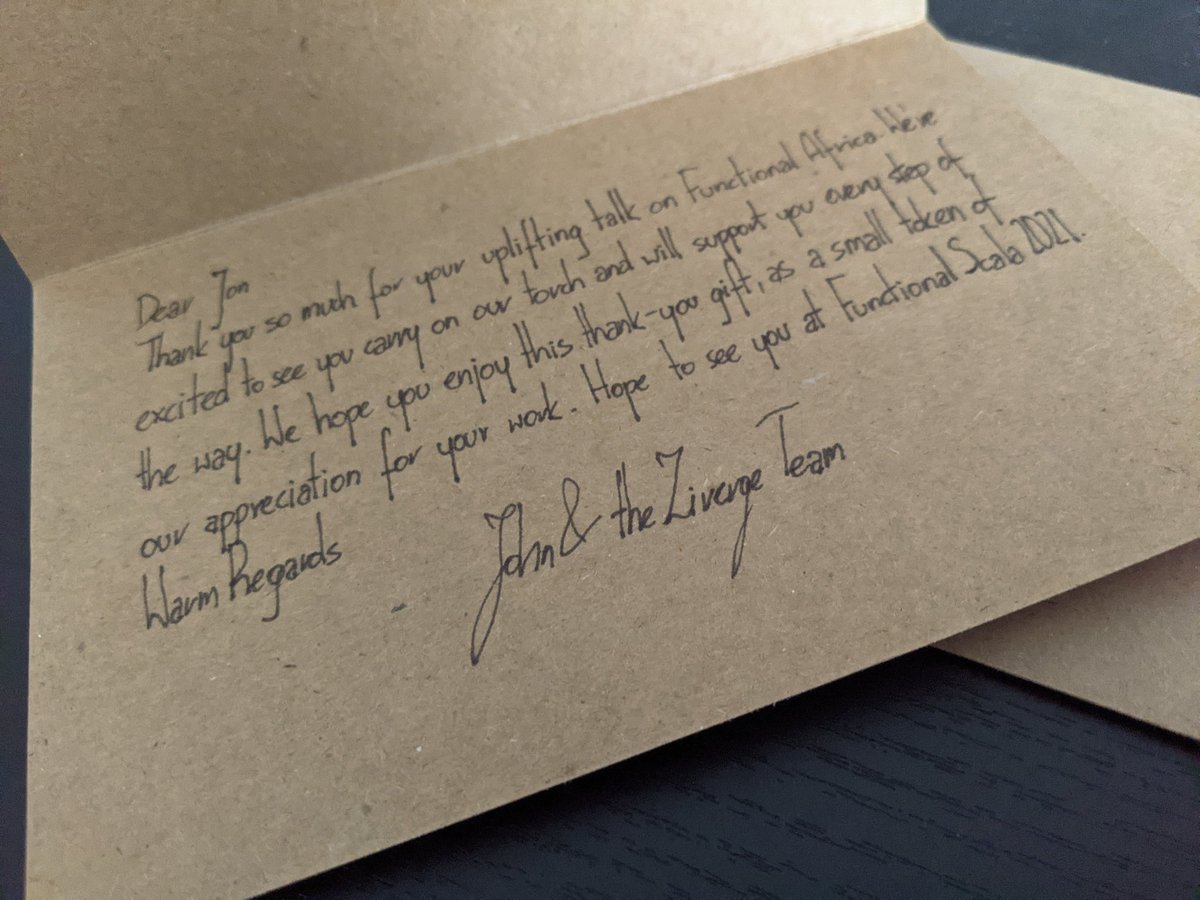 Dear Jon
Thank you so much for your uplifting talk on Functional Africa. We're
excited to see you carry on our torch and will support you every step of
the way. We hope you enjoy this thank-you gift, as a small token of
our appreciation for your work. Hope to see you at Functional Scala 2021.
Warm Regards
John & the Ziverge Team